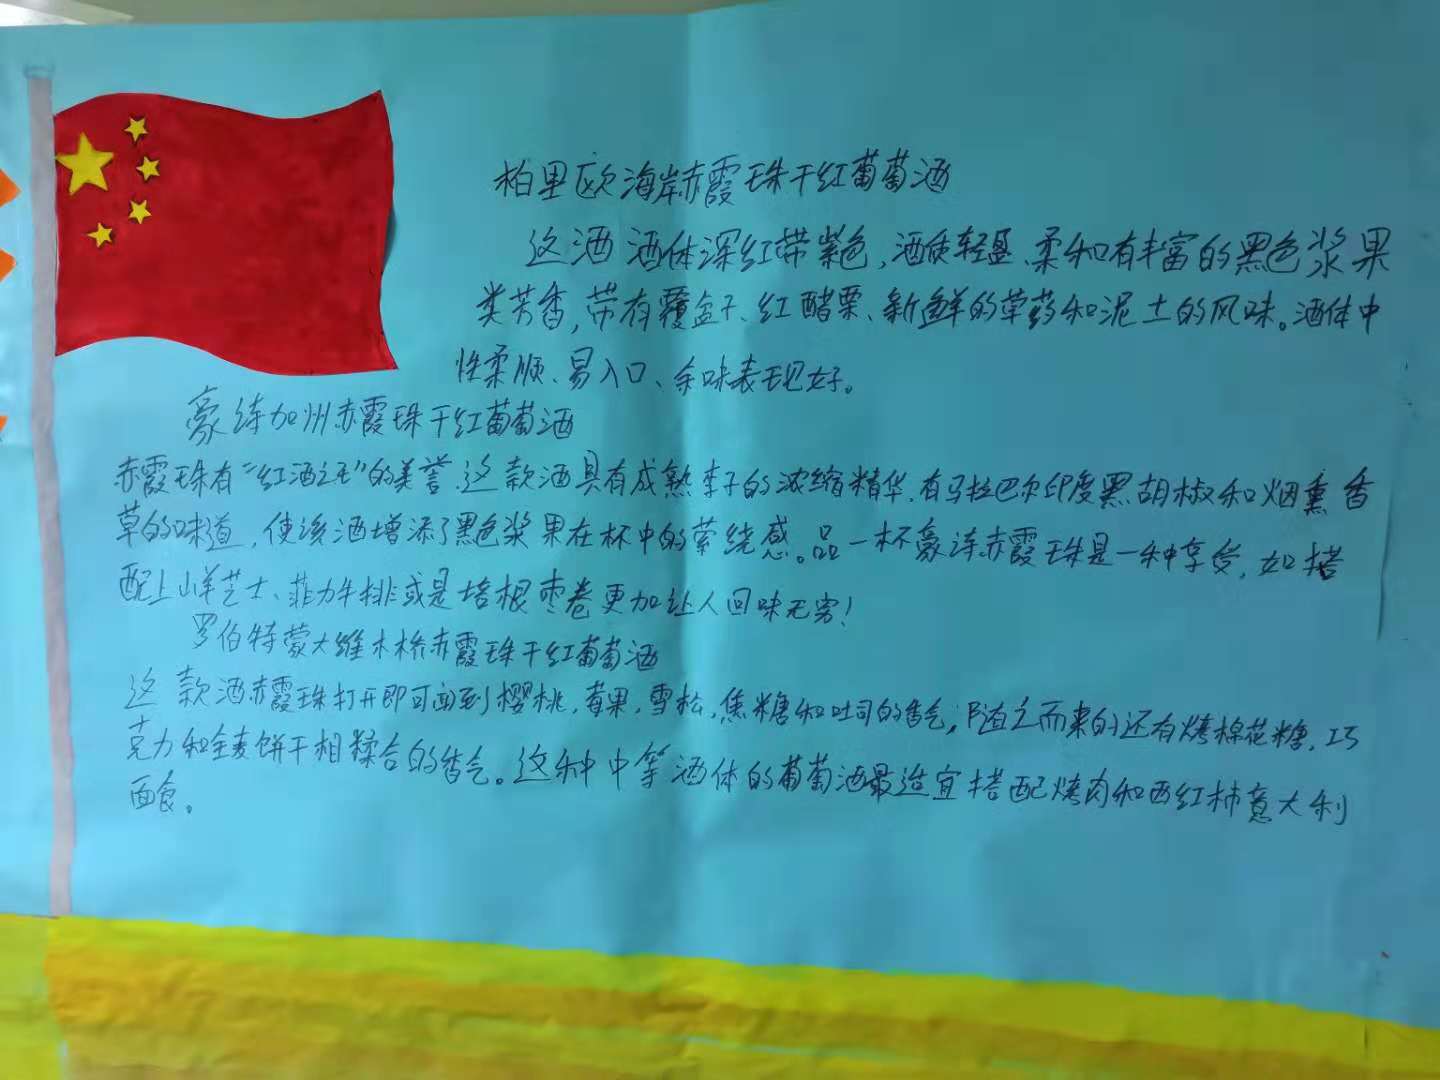 柏里欧海岸赤霞珠干红葡萄酒
这酒酒体深红带紫色,酒质轻盈、柔和有丰富的黑色浆果
类芳香,带有覆盆子、红醋栗、新鲜的草药和泥土的风味。酒体中
性柔顺、易入口、余味表现好。
豪诗加州赤霞珠干红葡萄酒
赤霞珠有“红酒之王”的美誉.这款酒具有成熟李子的浓缩精华.有马拉巴尔印度黑胡椒和烟熏香
草的味道,使该酒增添了黑色浆果在杯中的萦绕感。品一杯豪诗赤霞珠是一种享受,如搭
配上山羊芝士、菲力牛排或是培根枣卷更加让人回味无穷!
罗伯特蒙大维木桥赤霞珠干红葡萄酒
这款酒赤霞珠打开即可面到樱桃,莓果,雪松,焦糖和吐司的香气,随之而来的还有烤棉花糖,巧
克力和全麦饼干相糅合的香气。这种中等酒体的葡萄酒最适宜搭配烤肉和西红柿意大利
面食。